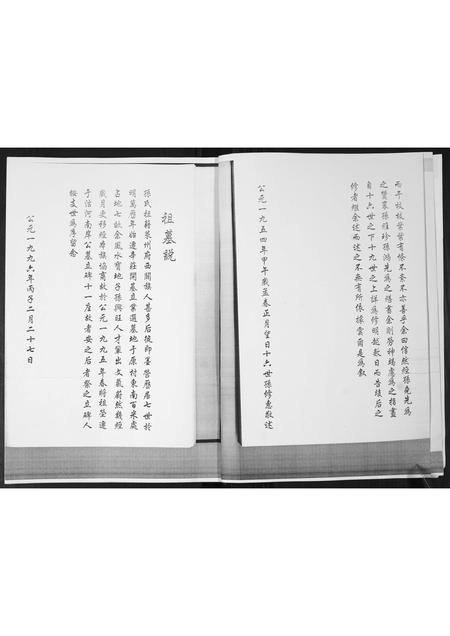 而千枝萬葉有條不紊不亦善乎余曰信然經孫堯先為
之贊襄孫維珍孫鴻先為之繕書余則勞神竭慮為之指畫
自十六世之下十九世之上詳為修明越數日而告竣后之
修者繼余述而述之不無有所依據雲爾是為敘
公元一九五四年甲午歲孟春正月望日十六世孫修惠敬述
祖墓說
孫氏祖籍萊州府西關旗人甚多后徙即墨營歷居七世於
明萬歷年始遷辛莊開基立業選墓地于原村東南百米處
占地七畝余風水寶地子孫興旺人才輩出文氣蔚然幾經
歲月更移經本族協商故於公元一九九五年春將祖塋遷
于沽河南岸公墓立碑十一座故者安之后者祭之立碑人
按支世為序留念
公元一九九六年丙子二月二十七日